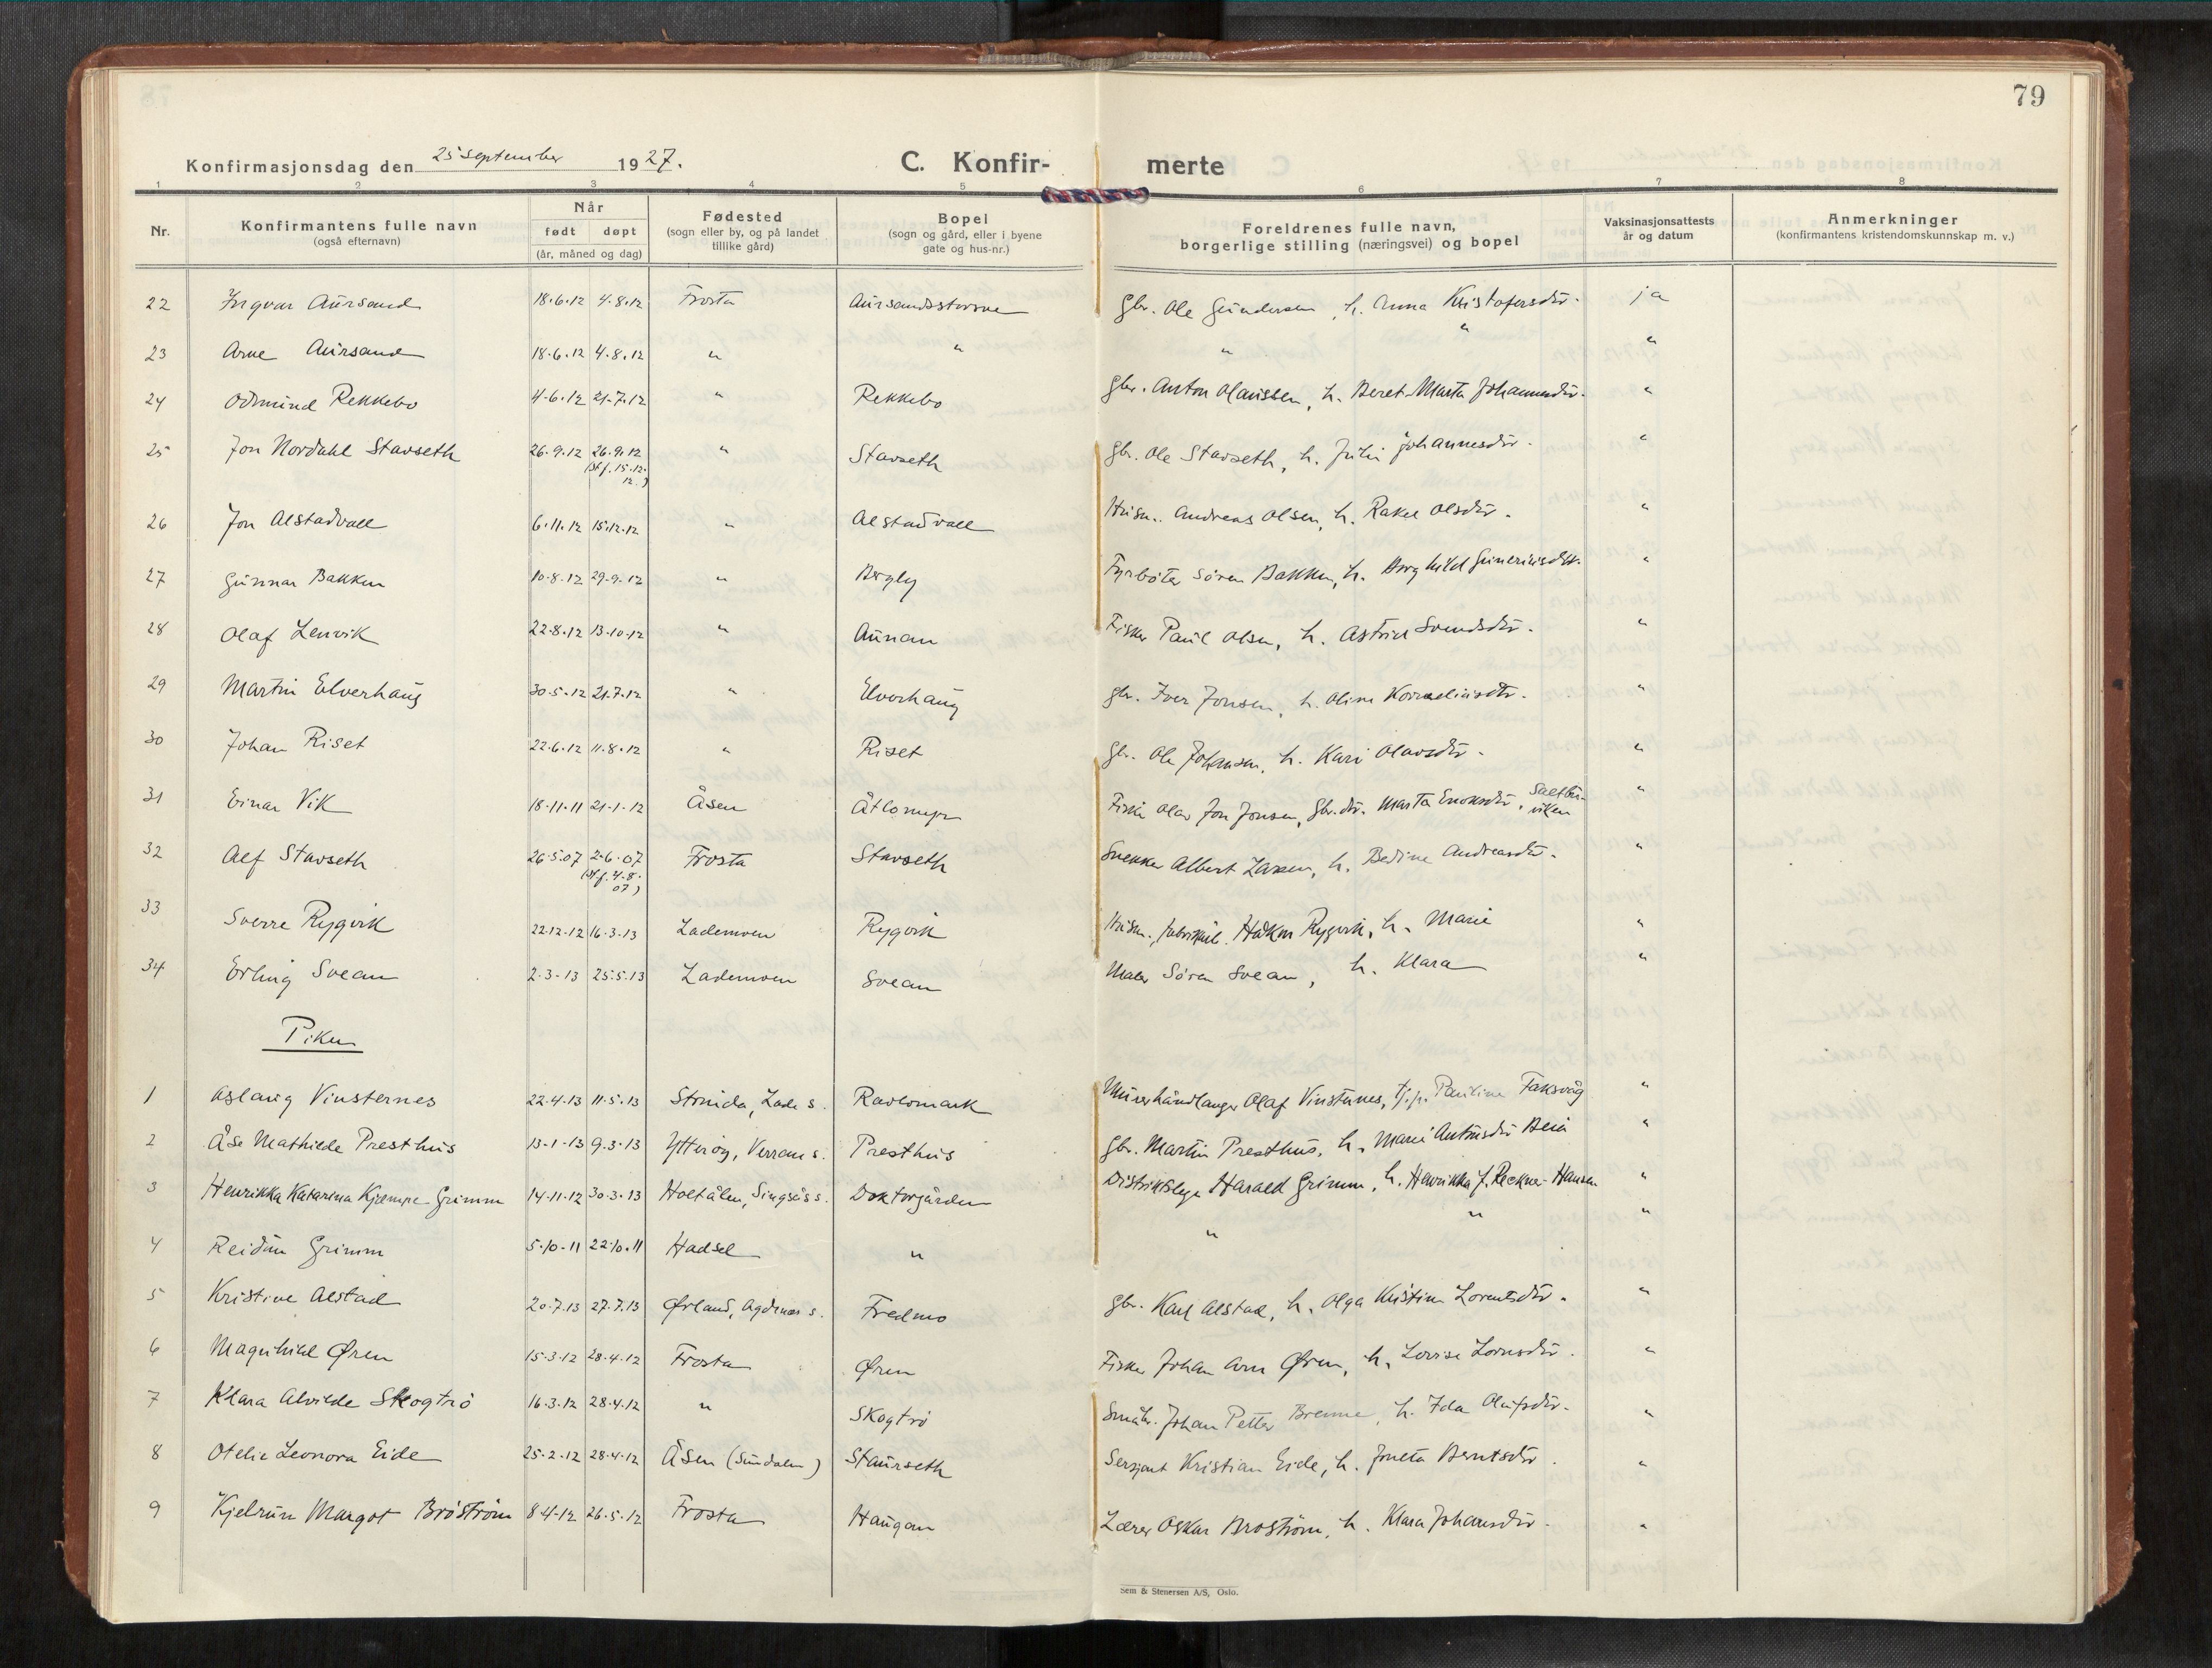 79
Konfirmasjonsdag den 25 september 1927.
C. Konfir- merte
1 2 3 4 5 6 7 8
Nr.
Konfirmantens fulle navn
(også efternavn)
Når
født døpt
(år, måned og dag)
Fødested
(sogn eller by, og på landet
tillike gård)
Bopel
(sogn og gård, eller i byene
gate og hus-nr.)
Foreldrenes fulle navn,
borgerlige stilling (næringsvei) og bopel
Vaksinasjonsattests
år og datum
Anmerkninger
(konfirmantens kristendomskunnskap m. v.)
22 Ingvar Aursand 18.6.12 4.8.12 Frosta Aursandsstorvne Gbr. Ole Gundersen, h. Anna Kristofersdtr. ja
23 Arne Aursand 18.6.12 4.8.12 " " " " "
24 Odmund Rekkebo 4.6.12 21.7.12 " Rekkebo Gbr. Anton Olaussen, h. Beret-Marta Johannesdtr. "
25 Jon Nordahl Stavseth 26.9.12 26.9.12 " Stavseth Gbr. Ole Stavseth, h. Julie Johannesdtr. "
(st f. 15.12.
12.)
26 Jon Alstadvall 6.11.12 15.12.12 " Alstadvall Husm. Andreas Olsen, h. Rakel Olsdtr. "
27 Gunnar Bakken 10.8.12 29.9.12 " Bergly Fyrbøter Sören Bakken, h. Borghild Guneriusdtr. "
28 Olaf Lenvik 22.8.12 13.10.12 " Aunan Fisker Paul Olsen, h. Astrid Svendsdtr. "
29 Martin Elverhaug 30.5.12 21.7.12 " Elverhaug Gbr. Iver Jonsen, h. Oline Korneliusdtr. "
30 Johan Riset 22.6.12 11.8.12 " Riset Gbr. Ole Johansen, h. Kari Olavsdtr. "
31 Einar Vik 18.11.11 21.1.12 Åsen Åtlomyr Fisker Olav Jon Jonsen, Gbr.dtr. Marta Enoksdtr., "
32 Alf Stavseth 26.5.07 2.6.07 Frosta Stavseth Snekker Albert Larsen, h. Bedine Andreasdtr. "
(st f. 4.8.
07)
33 Sverre Rygvik 22.12.12 16.3.13 Lademoen Rygvik Husm., Håkon Rygvik, h. Marie "
34 Erling Svean 2.3.13 25.5.13 Lademoen Svean Maler Sören Svean, h. Klara "
Piker
1 Aslaug Vinsternes 22.4.13 11.5.13 Strinda, Lade s. Ravlomark Murerhåndlanger Olaf Vinsternes, Pauline Faksvåg "
2 Åse Mathilde Presthus 13.1.13 9.3.13 Ytterøy, Verran s. Presthus Gbr. Martin Presthus, h. Marie Antonsdtr Beia "
3 Henrikka Katarina Kjempe Grimm 14.11.12 30.3.13 Holtålen, Singsås s. Doktorgården Distriktslege Harald Grimm, h. Henrikka f. Reckner-Hansen "
4 Reidun Grimm 5.10.11 22.10.11 Hadsel " " " "
5 Kristine Alstad 20.7.13 27.7.13 Ørland, Agdenes s. Fredmo Gbr. Karl Alstad, h. Olga Kristine Lorentsdtr. "
6 Magnhild Øren 15.3.12 28.4.12 Frosta Øren Fisker Johan Arn Øren, h. Lovise Lornsdtr. "
7 Klara Alvilde Skogtrö 16.3.12 28.4.12 " Skogtrö Småbr. Johan Petter Brenne, h. Ida Olufsdtr. "
8 Otelie Leonora Eide 25.2.12 28.4.12 Åsen (Sundalen) Staurseth Sersjant Kristian Eide, h. Jonetta Berntsdtr. "
9 Kjelrun Margot Broström 8.4.12 26.5.12 Frosta Haugan Lærer Oskar Broström, h. Klara Johansdtr. "
Sem & Stenersen A/S, Oslo.